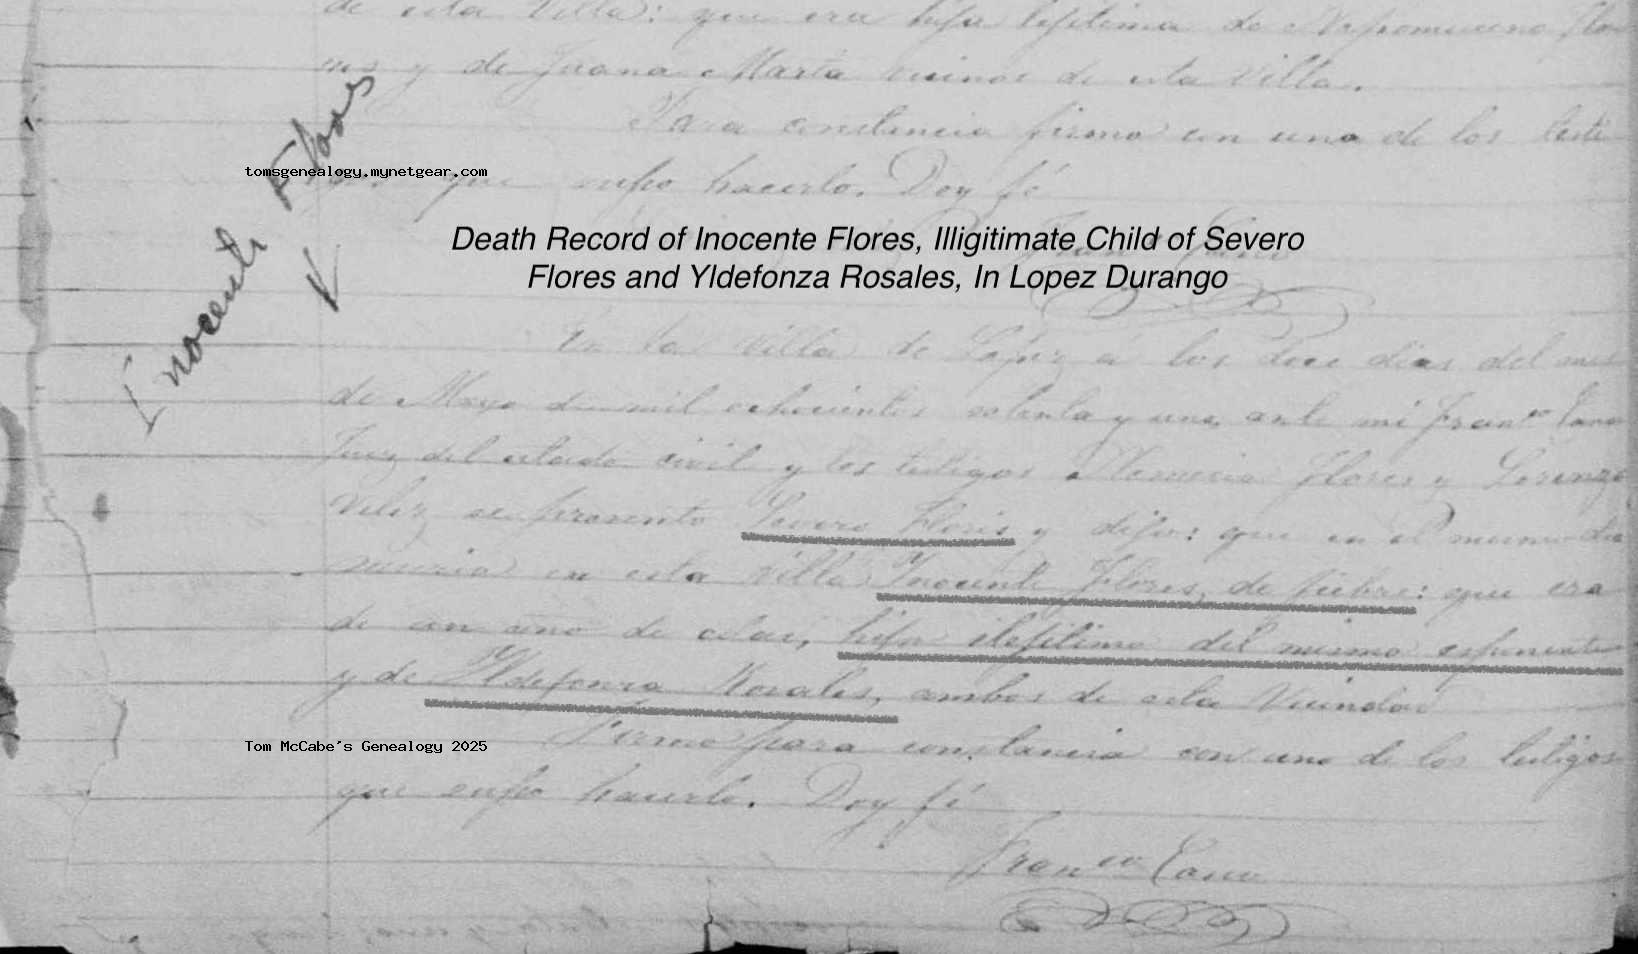 de esta Villa: que era hija lejitima de Nepomuceno Flo
res y de Juana Marta vecinos de esta Villa.
Para constancia firmo con uno de los testi
que supo hacerlo. Doy fé
tomsgenealogy.mynetgear.com
Inocente Flores
Death Record of Inocente Flores, Illigitimate Child of Severo
Flores and Yldefonza Rosales, In Lopez Durango
En la Villa de Lopez á los doce dias del mes
de Mayo de mil ochocientos setenta y uno, ante mi Franco Cano
Juez del estado civil y los testigos Flores y Lorenzo
Velez se presento Severo Flores y dijo: que en el mismo dia
murio en esta Villa Inocente Flores, de fiebre: que era
de un año de edad, hijo ilejitimo del mismo esponente
y de Yldefonza Rosales, ambos de esta Vecindad
Tom McCabe's Genealogy 2025
Firmo para constancia con uno de los testigos
que supo hacerlo. Doy fé
Franco Cano